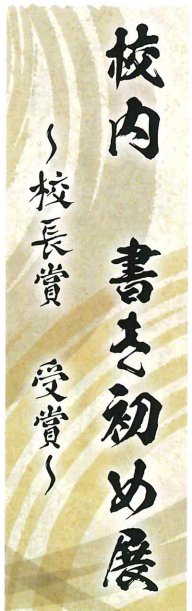 校内　書き初め展
～校長賞　受賞～